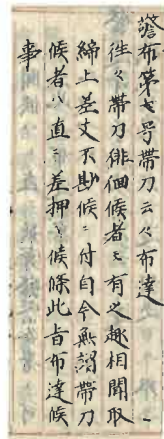 警布第七号帯刀云々布達
往々帯刀徘徊候者モ有之趣相聞取
締上差支不尠候ニ付自今無謂帯刀
候者ハ直ニ差押ヘ候條此旨布達候
事